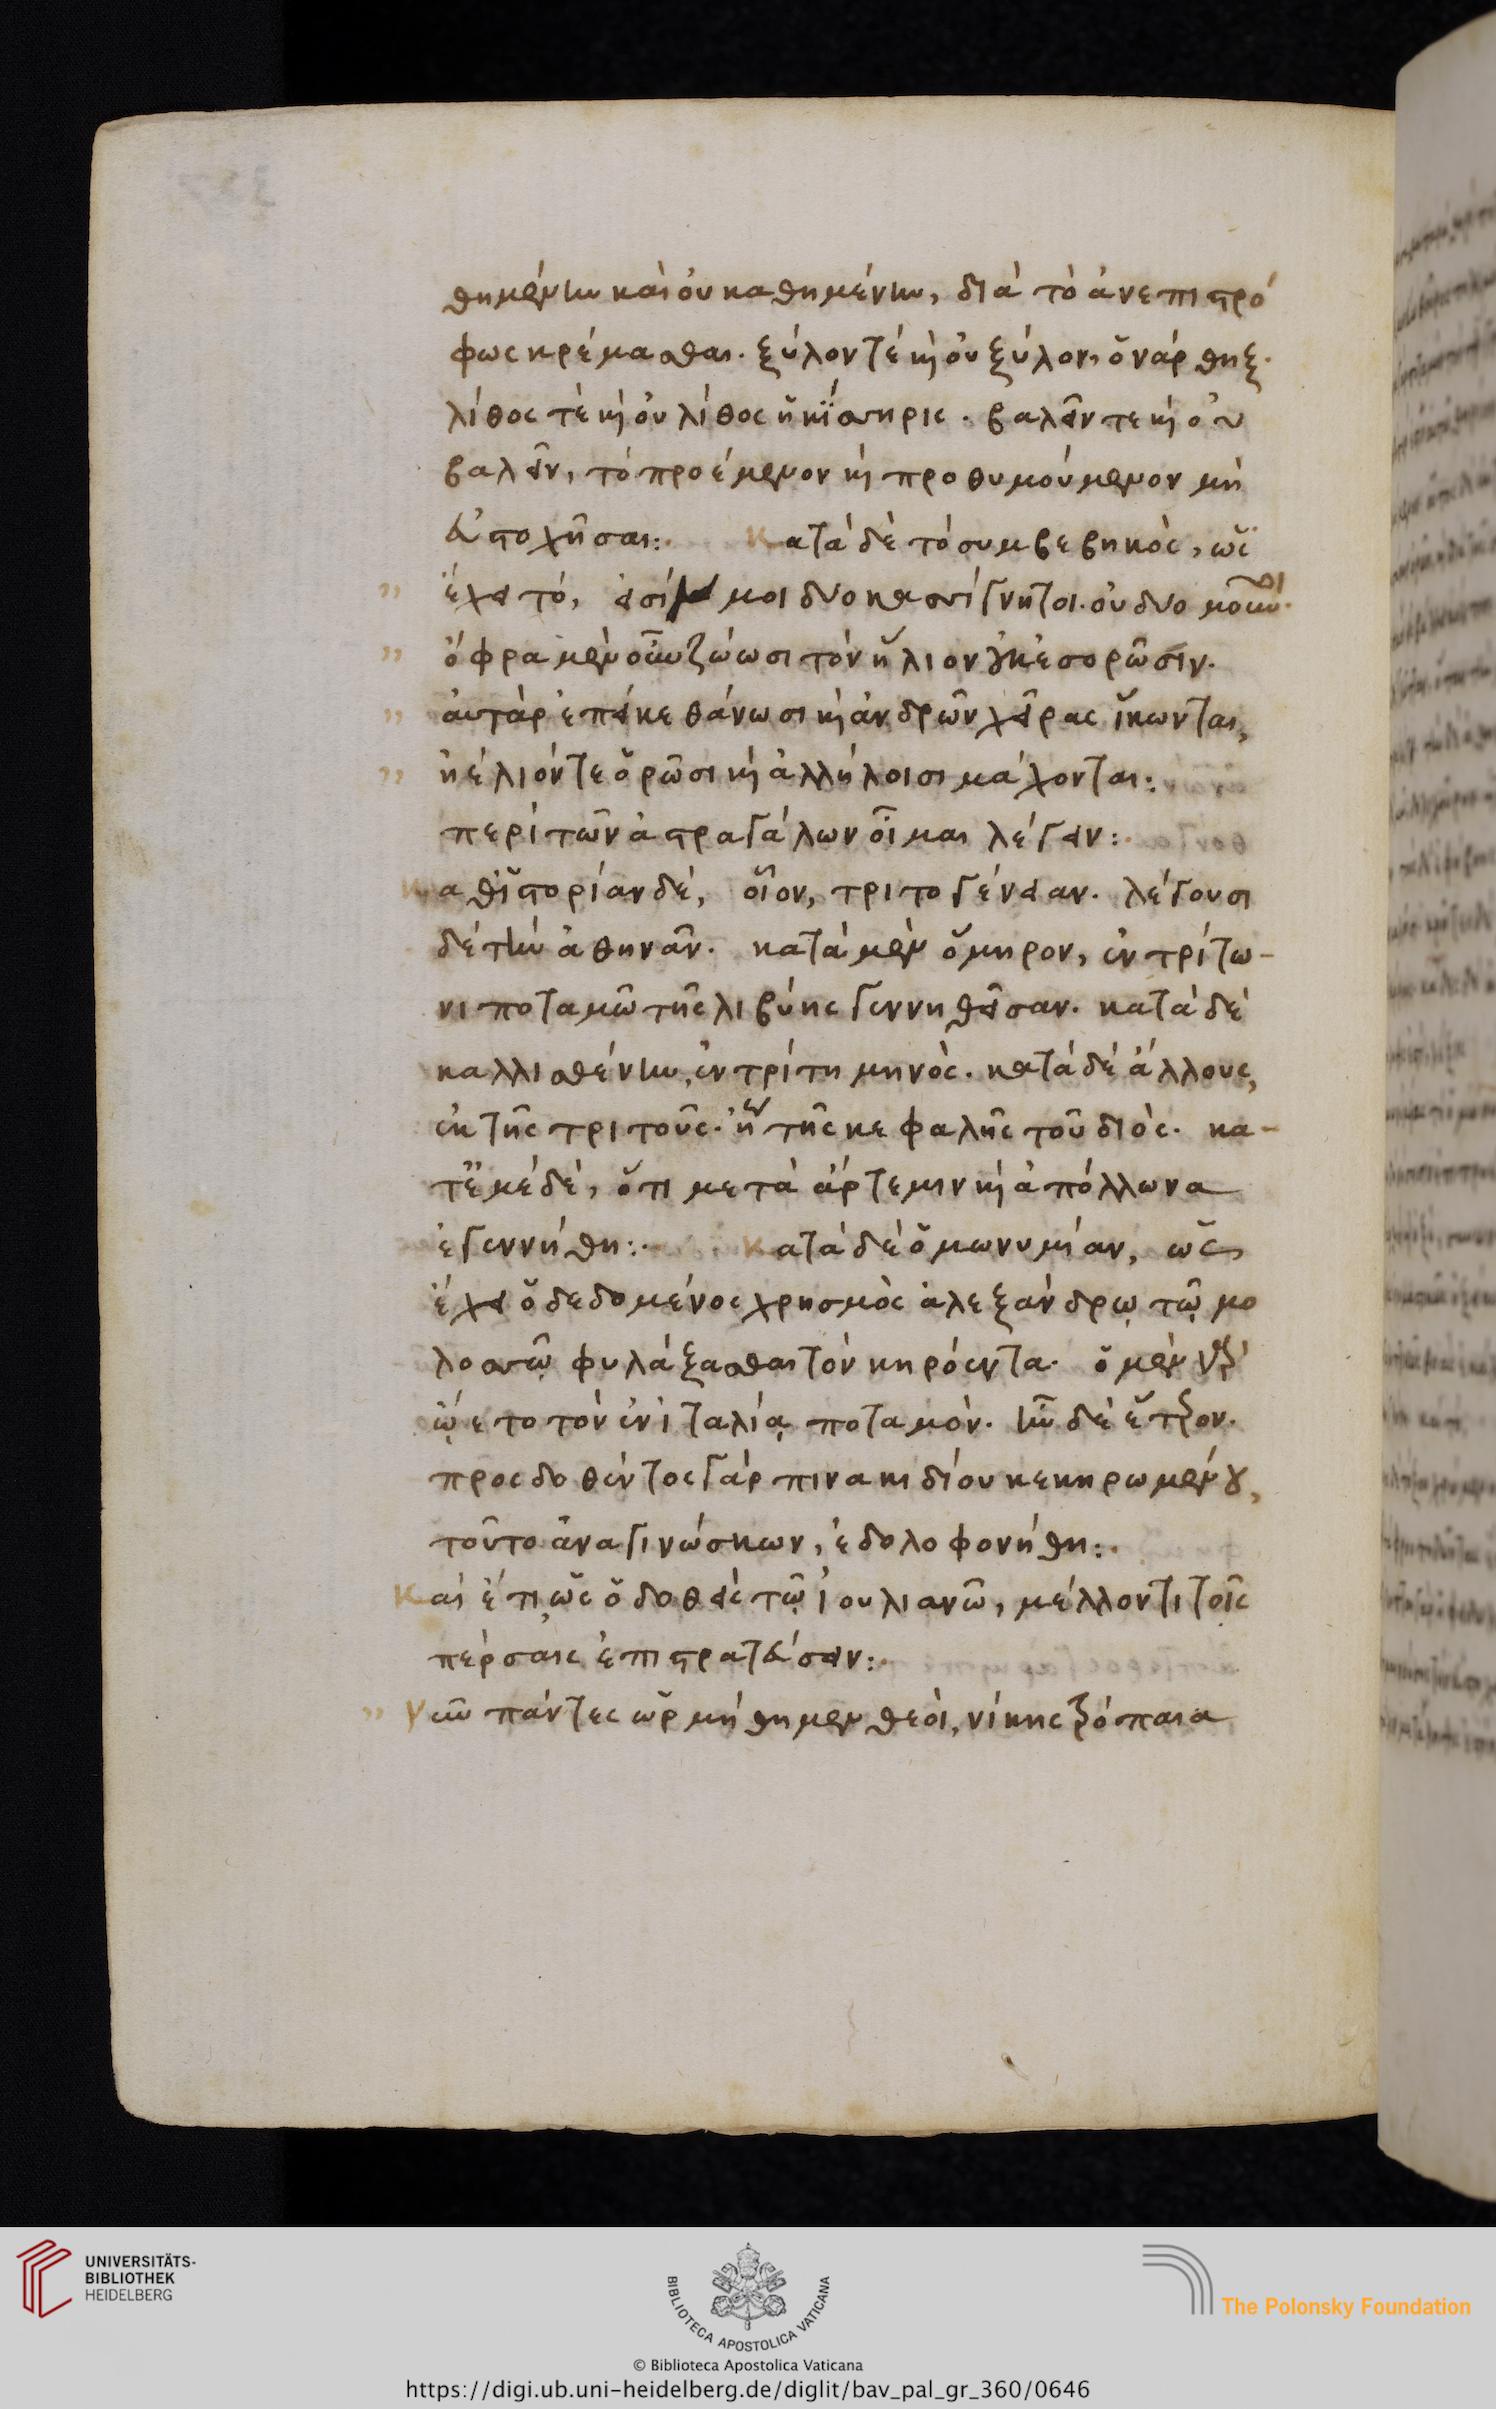 θημένην καὶ οὐ καθημένην, διὰ τὸ ἀνεπιστρό
φως κρέμασθαι. ξύλον τέ κὶ οὐ ξύλον, ὁ νάρθηξ.
λίθος τὲ κὶ οὐ λίθος ἡ κίσηρις. βαλεῖν τε κὶ οὐ
βαλεῖν, τὸ προέμενον κὶ προθυμούμενον μὴ
εὐστοχῆσαι:. Κατὰ δὲ τὸ συμβεβηκὸς, ὡς
ἔχει τό, εἰσί μοι δύο κασίγνητοι. οὐ δύο μοῦνοι.
ὄφρα μὲν οὖν ζώωσι τὸν ἥλιον οὐκ ἐσορῶσιν.
αὐτὰρ ἐπεί κε θάνωσι κὶ ἀνδρῶν χεῖρας ἵκωνται,
ἠέλιόν τε ὁρῶσι κὶ ἀλλήλοισι μάχονται:
περὶ τῶν ἀστραγάλων οἶμαι λέγειν:.
Καθ ἱστορίαν δέ, οἷον, τριτογένειαν. λέγουσι
δὲ τὴν ἀθηνᾶν. κατὰ μὲν ὅμηρον, ἐν τρίτω-
νι ποταμῶ τῆς λιβύης γεννηθεῖσαν. κατὰ δὲ
καλλισθένην, ἐν τρίτη μηνὸς. κατὰ δὲ ἄλλους,
ἐκ τῆς τριτοῦς. ἤ τῆς κεφαλῆς τοῦ διὸς. κα-
τ ἐμὲ δὲ, ὅτι μετὰ ἄρτεμιν κὶ ἀπόλλωνα
ἐγεννήθη:. Κατὰ δὲ ὁμωνυμίαν, ὡς
ἔχει ὁ δεδομένος χρησμὸς ἀλεξάνδρῳ τῷ μο
λοσσῷ φυλάξασθαι τὸν κηρόεντα. ὁ μὲν γὰρ
ᾤετο τὸν ἐν ἰταλίᾳ ποταμὸν. ἦν δὲ ἕτερον.
προσδοθέντος γὰρ πινακιδίου κεκηρωμένου,
τοῦτο ἀναγινώσκων, ἐδολοφονήθη:.
Καὶ ἔτι ὡς ὁ δοθεὶς τῷ ἰουλιανῶ, μέλλοντι τοῖς
πέρσαις ἐπιστρατεύσειν:.
Νῦν πάντες ὡρμήθημεν θεοὶ, νίκης τρόπαια
UNIVERSITÄTS-
BIBLIOTHEK
HEIDELBERG
BIBLIOTECA APOSTOLICA VATICANA
The Polonsky Foundation
© Biblioteca Apostolica Vaticana
https://digi.ub.uni-heidelberg.de/diglit/bav_pal_gr_360/0646